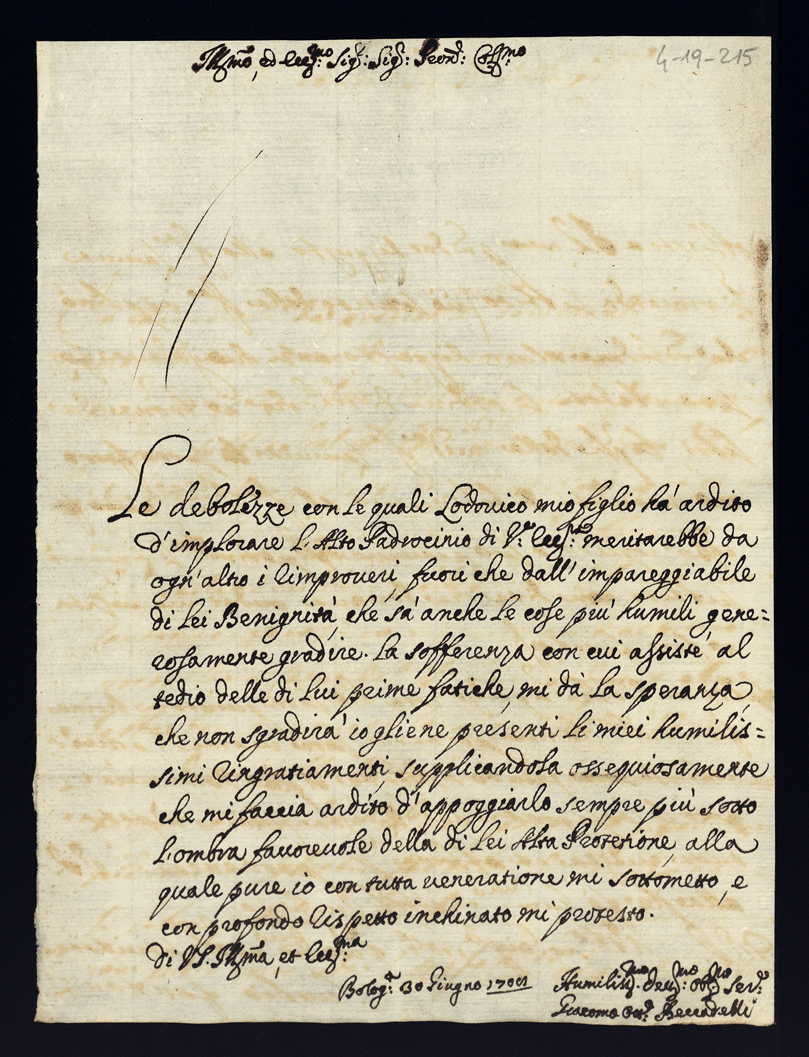 Ill.mo, ed Ecc.mo Sig.r Sig.r Pron. Col.mo
4-19-215
Le debolezze con le quali Lodovico mio figlio hà ardito
d'implorare l'Alto Padrocinio di V.ra Ecc.za meritarebbe da
ogn'altro i rimproveri, fuori che dall'impareggiabile
di Lei Benignità, che sà anche le cose più humili gene=
rosamente gradire. La sofferenza con cui assistè al
tedio delle di lui prime fatiche, mi dà la speranza,
che non sgradirà io gliene presenti li miei humilis=
simi ringratiamenti, supplicandola ossequiosamente
che mi faccia ardito d'appoggiarlo sempre più sotto
l'ombra favorevole della di Lei Alta Protetione, alla
quale pure io con tutta veneratione mi sottometto, e
con profondo rispetto inchinato mi protesto.
Di VS. Ill.ma, et Ecc.ma
Bolog.a 30 Giugno
Humiliss.mo dev.mo obb.mo Ser.
Giacomo Ott. Beccadelli